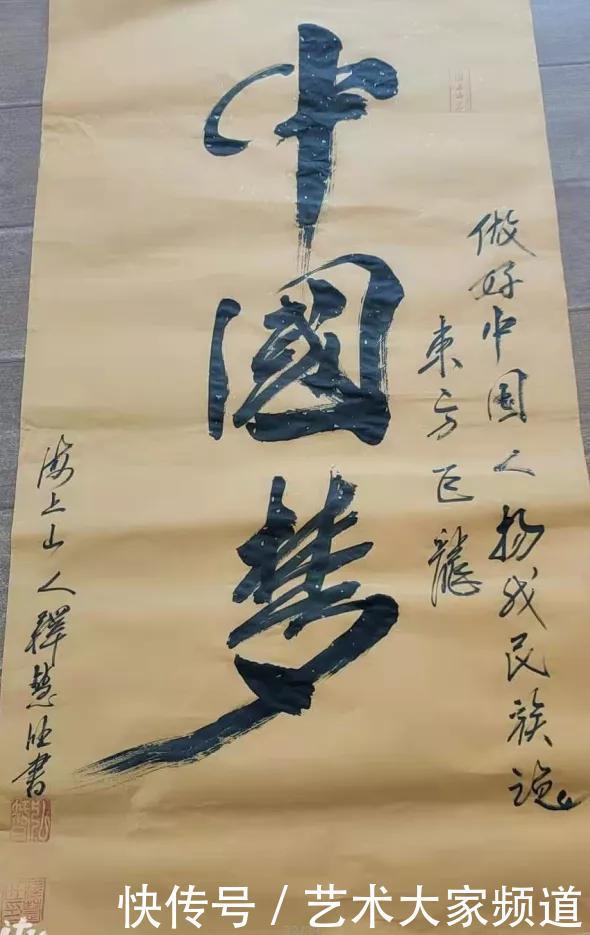 做好中国人扬我民族魂
東方巨龍
中國梦
海上山人釋慧書
快传号 / 艺术大家频道